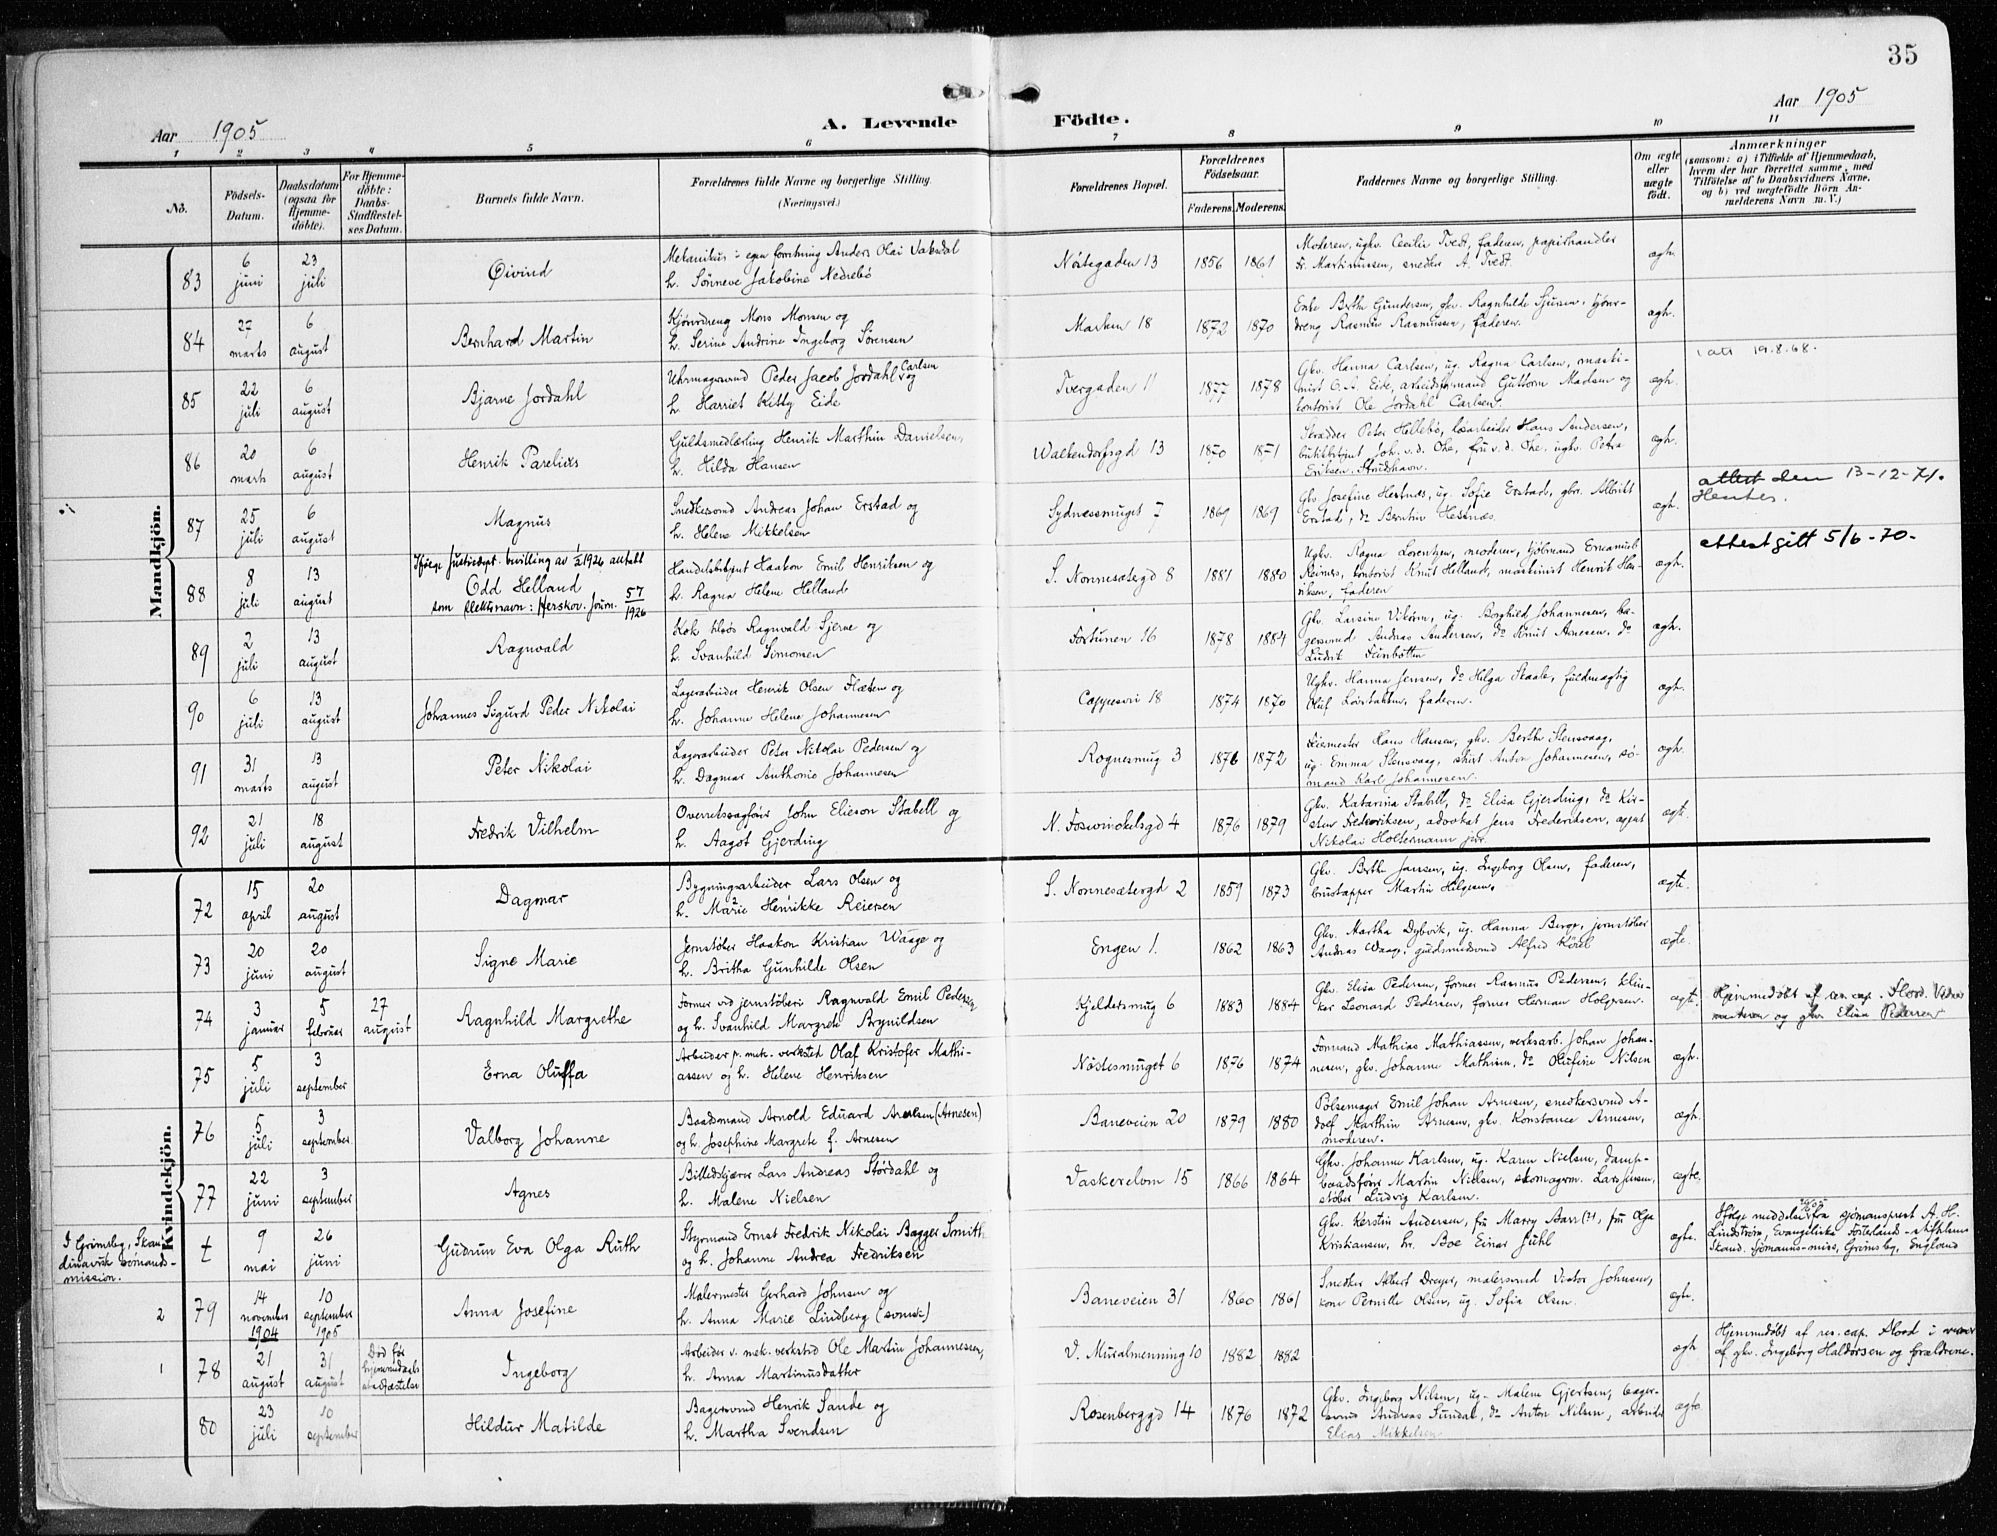 35
Aar 1905
A. Levende Födte.
Aar 1905
1 2 3 4 5 6 7 8 9 10 11
No.
Födsels-Datum.
Daabsdatum (ogsaa for Hjemme-döbte).
For Hjemme-döbte: Daabs-Stadfæstel-ses Datum.
Barnets fulde Navn.
Forældrenes fulde Navne og borgerlige Stilling. (Næringsvei.)
Forældrenes Bopæl.
Forældrenes Födselsaar.
Faderens. Moderens.
Faddernes Navne og borgerlige Stilling.
Om ægte eller uægte födt.
Anmærkninger
(saasom: a) i Tilfælde af Hjemmedaab,
hvem der har forrettet samme, med
Tilföielse af to Daabsvidners Navne,
og b) ved uægtefödte Börn An-
melderens Navn m. V.)
Mandkjön.
83 6 juni 23 juli Øivind
Mekanikus i egen forretning Anders Olai Vaksdal
h. Sønneve Jakobine Nedrebø
Nøstegaden 13 1856 1861
Moderen, ugkv. Cecilie Tvedt, faderen, papirhandler
Fr. Martinussen, snedker A. Tvedt.
egte.
84 27 marts 6 august Bernhard Martin
Kjøredreng Mons Monsen og
h. Serine Andrine Ingeborg Sørensen
Marken 18 1872 1870
Enke Berthe Gundersen, gkv. Ragnhilde Sjursen, kjøre-
dreng Rasmus Rasmussen, faderen.
ægte.
85 22 juli 6 august Bjarne Jordahl
Uhrmagersvend Peder Jacob Jordahl Carlsen og
h. Harriet Kitty Eide
Tvergaden 11 1877 1878
Gkv. Hanna Carlsen, ug. Ragna Carlsen, maski-
nist O.A. Eide, arbeidsformand Guttorm Madsen og
kontorist Ole Jordahl Carlsen.
ægte.
19.8.68.
86 20 marts 6 august Henrik Parelius
Guldsmedlærling Henrik Marthin Danielsen,
h. Hilda Hansen
Walkendorfsgd 13 1870 1871
Skrædder Peter Hellebø, løsarbeider Hans Andersen,
butikbetjent Joh. v.d. Ohe, fru v.d. Ohe, ugkv. Petra
Eriksen.
ægte.
87 25 juli 6 august Magnus
Snedkersvend Andreas Johan Erstad og
h. Helene Mikkelsen
Sydnessmuget 7 1869 1869
Gkv Josefine Hestnæs, ug. Sofie Erstad, gbr. Albrikt
Erstad, do Berntin Hestnæs.
egte.
attest den 13-12-71.
Hentes.
88 8 juli 13 august
Ifølge Justisdept. bevilling av 1/2 1926 antatt
Odd Helland
som slektsnavn: Herskov. Journ. 57/1926
Handelsbetjent Haakon Emil Henriksen og
h. Ragna Helene Helland
S. Nonnesætergd 8 1881 1880
Ugkv. Ragna Lorentzen, moderen, kjøbmand Emanuel
Reimers, kontorist Knut Helland, maskinist Henrik Hen-
riksen, faderen
ægte.
attest gitt 5/6-70-
89 2 juli 13 august Ragnvald
Kok Ragnvald Sjerne og
h. Svanhild Simonsen
Fortunen 16 1878 1884
Gkv. Larsine Vikøren, ug. Borghild Johannesen, ba-
gersvend Andreas Andersen, do Knut Arnesen, do
Ludvik
ægte.
90 6 juli 13 august Johannes Sigurd Peder Nikolai
Lagerarbeider Henrik Olsen Flæten og
h. Johanne Helene Johannesen
Cappesvei 18 1874 1870
Ugkv. Hanna Jensen, do Helga Skaale, fuldmægtig
Oluf Løvstakken, faderen.
ægte.
91 31 marts 13 august Peter Nikolai
Lagerarbeider Peter Nikolai Pedersen og
h. Dagmar Anthonie Johannesen
Rognesmug 3 1876 1872
Feiermester Hans Hansen, gkv. Berthe Stensvaag,
ug. Emma Stensvaag, Anton Johannesen, sø-
mand Karl Johannesen.
ægte.
92 21 juli 18 august Fredrik Vilhelm
Overretssagfører John Elieson Stabell og
h. Aagot Gjerding
N. Foswinckelsgd 4 1876 1879
Gkv. Katarina Stabell, do Elisa Gjerding, do Kir-
sten Frederiksen, advokat Jens Frederiksen, agent
Nikolai Holtermann jnr.
ægte.
Kvindekjön.
72 15 april 20 august Dagmar
Bygningsarbeider Lars Olsen og
h. Marie Henrikke Reiersen
S. Nonnesætergd 2 1859 1873
Gkv. Berthe Jansen, ug. Ingeborg Olsen, faderen,
Martin Helgesen.
ægte.
73 20 juni 20 august Signe Marie
Jernstøber Haakon Kristian Waage og
h. Britha Gunhilde Olsen
Engen 1. 1862 1863
Gkv. Martha Dybvik, ug. Hanna Berge, jernstøber
Andreas Waage, guldsmedsvend Alfred
ægte.
74 3 januar 5 februar 27 august Ragnhild Margrethe
Former ved jernstøberi Ragnvald Emil Pedersen
og h. Svanhild Margrete Brynildsen
Kjeldersmug 6 1883 1884
Gkv. Elisa Pedersen, former Rasmus Pedersen, klin-
ker Leonard Pedersen, former Herman Holgersen.
ægte.
Hjemmedøbt af res. cap. Flood. Vidner
moderen og gkv Elisa Pedersen
75 5 juli 3 september Erna Oluffa
Arbeider p. mek. verksted Olaf Kristofer Mathi-
assen og h. Helene Henriksen
Nøstesmuget 6 1876 1874
Formand Mathias Mathiassen, verksarb. Johan Johan-
nesen, gkv. Johanne Mathisen, do Olufine Nilsen
ægte.
76 5 juli 3 september. Valborg Johanne
Baadsmand Arnold Eduard Arnesen (Arnesen)
og h. Josephine Margrete f. Arnesen
Baneveien 20 1879 1880
Pølsemager Emil Johan Arnesen, snedkersvend A-
dolf Marthin Arnesen, gkv. Konstance Arnesen,
moderen.
ægte.
77 22 juni 3 september Agnes
Billedskjærer Lars Andreas Størdahl og
h. Malene Nielsen
Vaskerelven 15 1866 1864
Gkv. Johanne Karlsen, ug. Karen Nielsen, damp-
baadsfører Martin Nielsen, skomagerm. Lars Jensen,
støber Ludvig Karlsen.
ægte.
I Grimsby, Skan-
dinavisk sømands-
mission.
t 9 mai 26 juni Gudrun Eva Olga Ruth
Styrmand Ernst Fredrik Nikolai Bagger Smith
og h. Johanne Andrea Fredriksen
Gkv. Kerstin Andersen, fru Marry Barr (?), fru Olga
Kristiansen, hr. Boe Einar Juhl
ægte.
Ifølge meddelelse fra sjömansprest A. H.
Lindström, Evangeliska Fosterland-stiftelsens
Skand. Sjömanns-miss., Grimsby, England
2 79 14 november 1904 10 september 1905 Anna Josefine
Malermester Gerhard Johnsen og
h. Anna Marie Lindberg (svensk)
Baneveien 31 1860 1861
Snedker Albert Dreyer, malersvend Victor Johnsen,
kone Pernille Olsen, ug. Sofia Olsen.
egte.
1 78 21 august 31 august Død før hjemmedaabs stadfæstelse Ingeborg
Arbeider v. mek. verksted Ole Martin Johannessen,
h. Anna Martinusdatter
V. Muralmenning 10 1882 1882
ægte
Hjemmedøbt af res. cap. Flood i nærvær
af gkv. Ingeborg Haldorsen og forældrene.
80 23 juli 10 september Hildur Matilde
Bagersvend Henrik Sande og
h. Martha Svendsen
Rosenberggd 14 1876 1872
Gkv. Ingeborg Nilsen, ug. Malene Gjertsen, bager-
svend Andreas Sundal, do Anton Nilsen, arbeider
Elias Mikkelsen
ægte